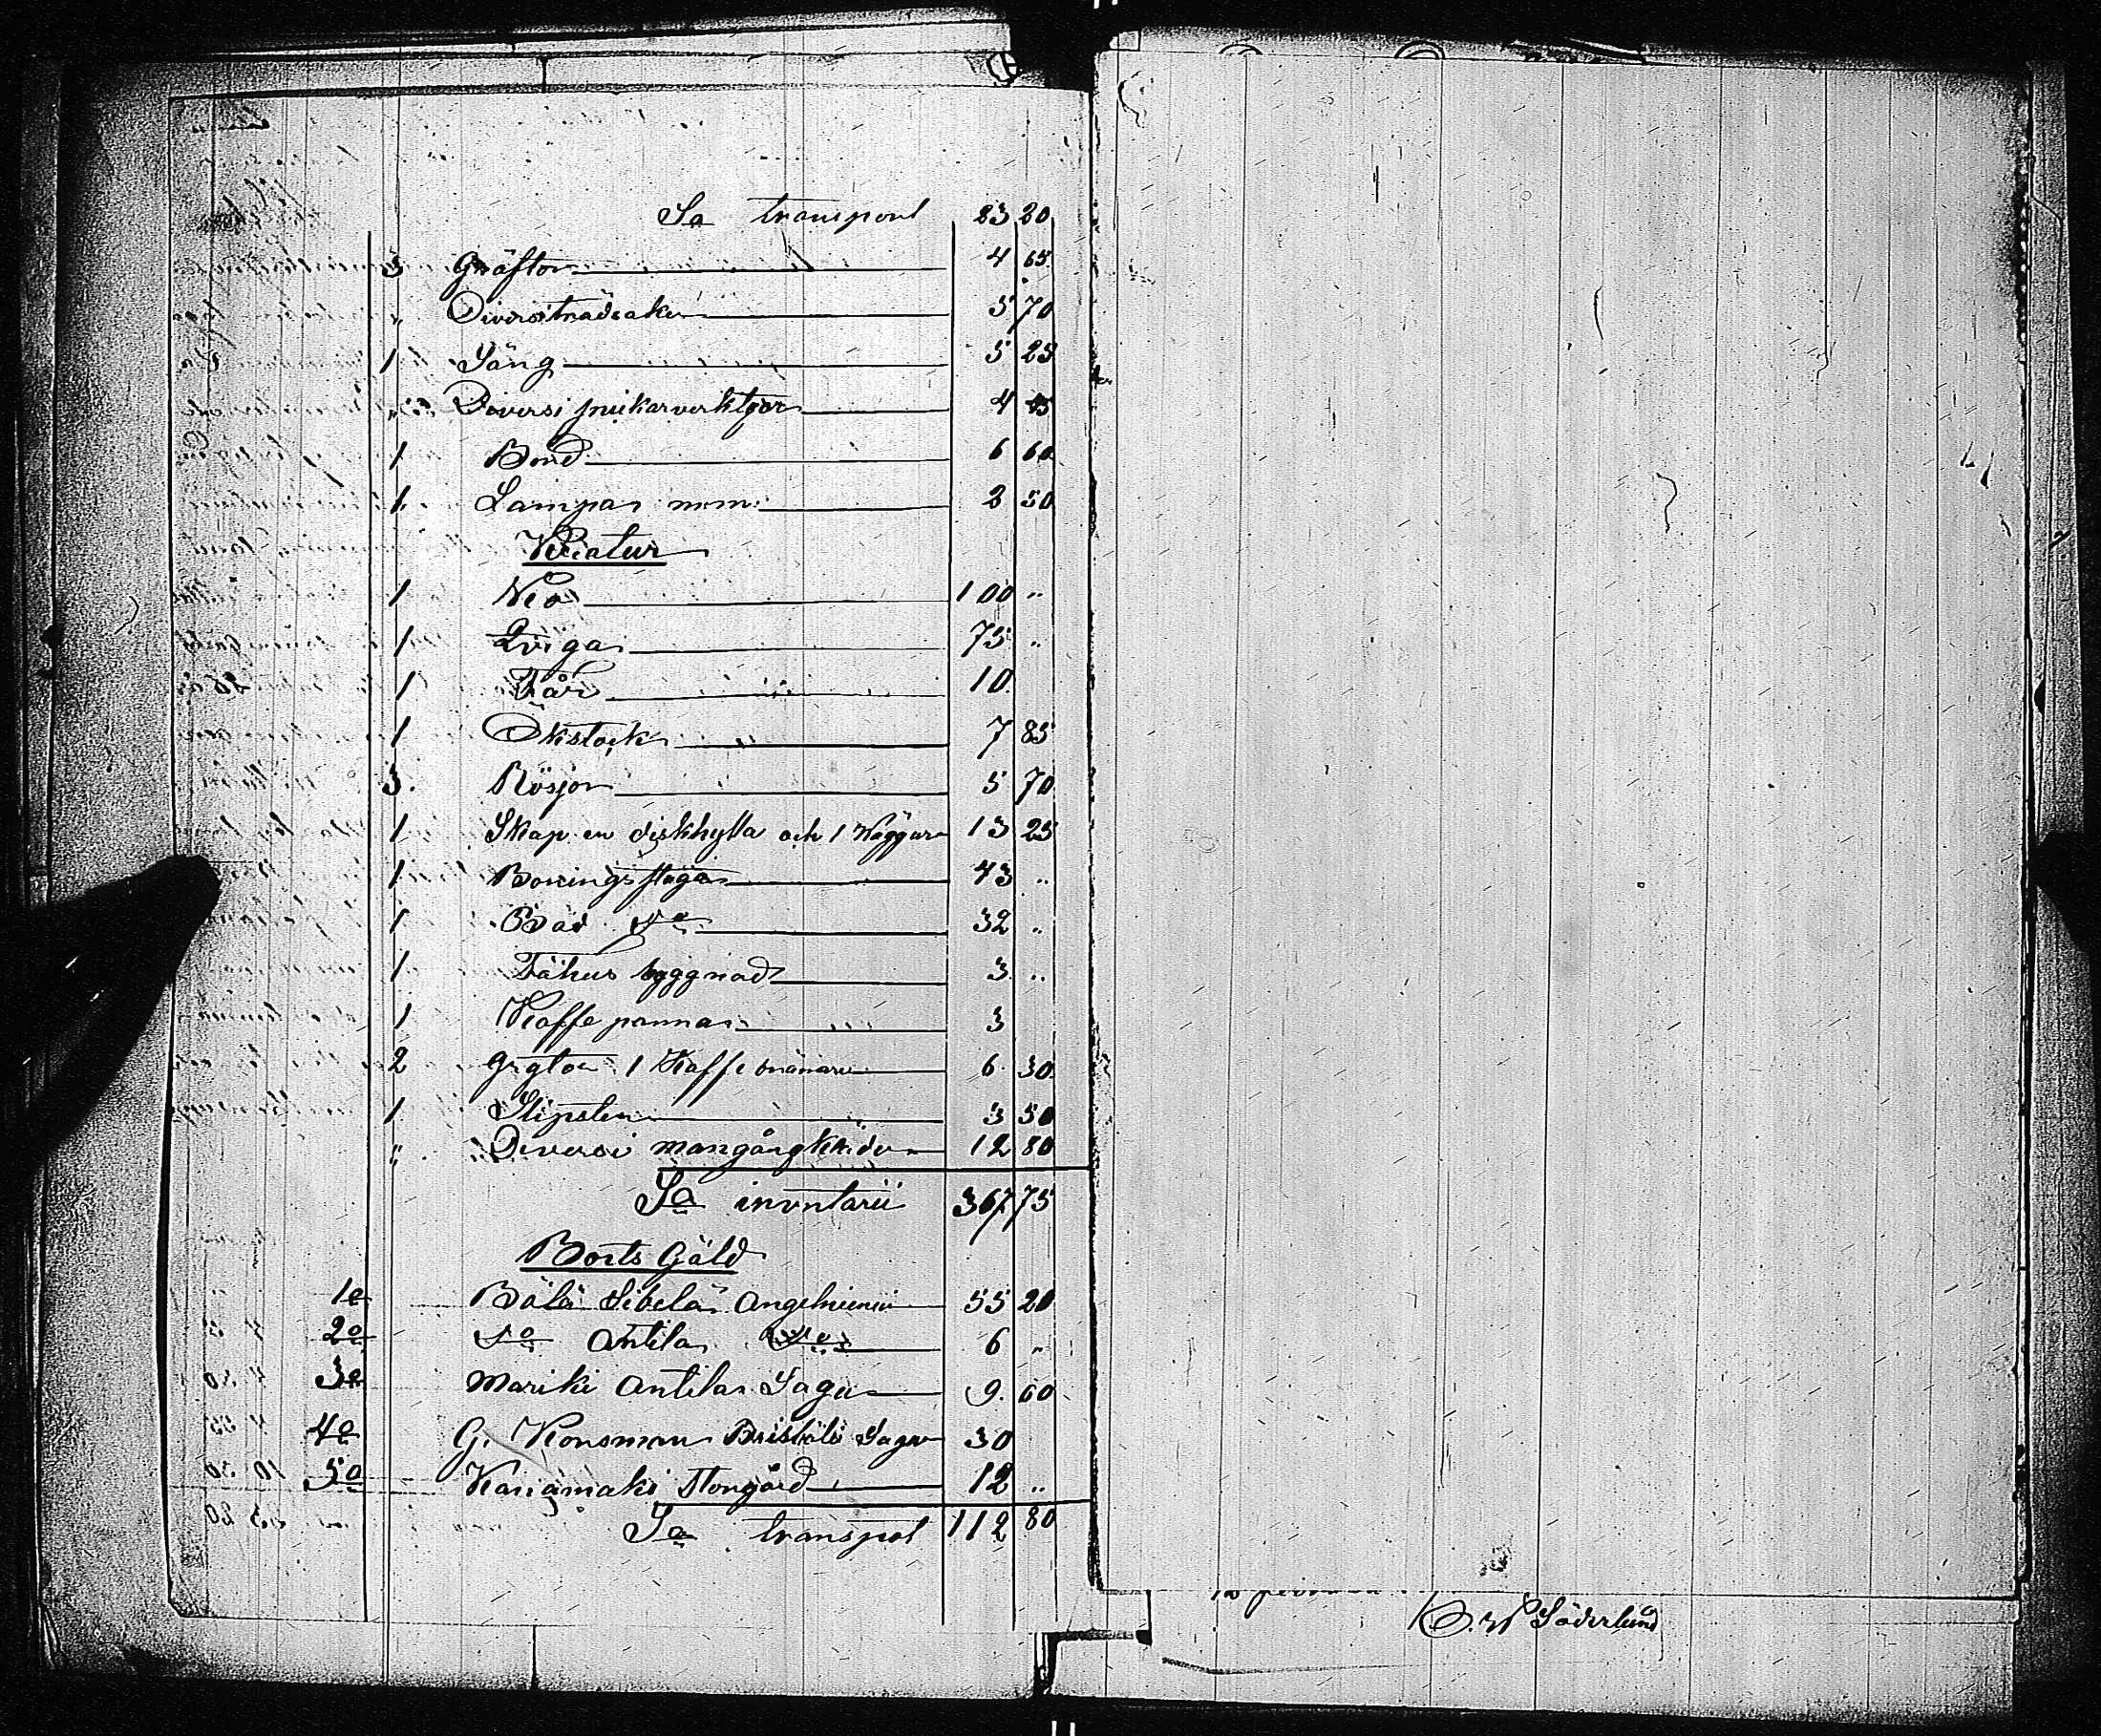 Sa transport 23 20
3 Gräftor 4 65
„ Diversi trädsaker 5 70
1 Säng 5 25
„ Diversi snickarverktyor 4 45
1 Bord 6 60
1 Lampa mm. 2 50
Kreatur
1 Ko 100 „
1 Qviga 75 „
1 Får 10
1 Ökstock 7 85
3. Rösjor 5 70
1 Skap en diskhylla och 1 Waggur 13 25
1 Boningsstuga 43 „
1 Bad do 32 „
1 Fähus byggnad 3 „
1 Kaffe panna 3
2 Grytor 1 Kaffe brännare 6. 30
1 Slipsten 3 50
„ Diversi mangångkläder 12 80
Sa inventarii 367 75
Borts Gäld
1o Bälä Sibelä Angelniemi 55 20
2o do Antila do 6 „
3o Mariki Antila Sagu 9. 60
4o G. Konsman Sagu 30
5o Karjamaki Storgård 12 „
Sa transpot 112 80
Söderlund